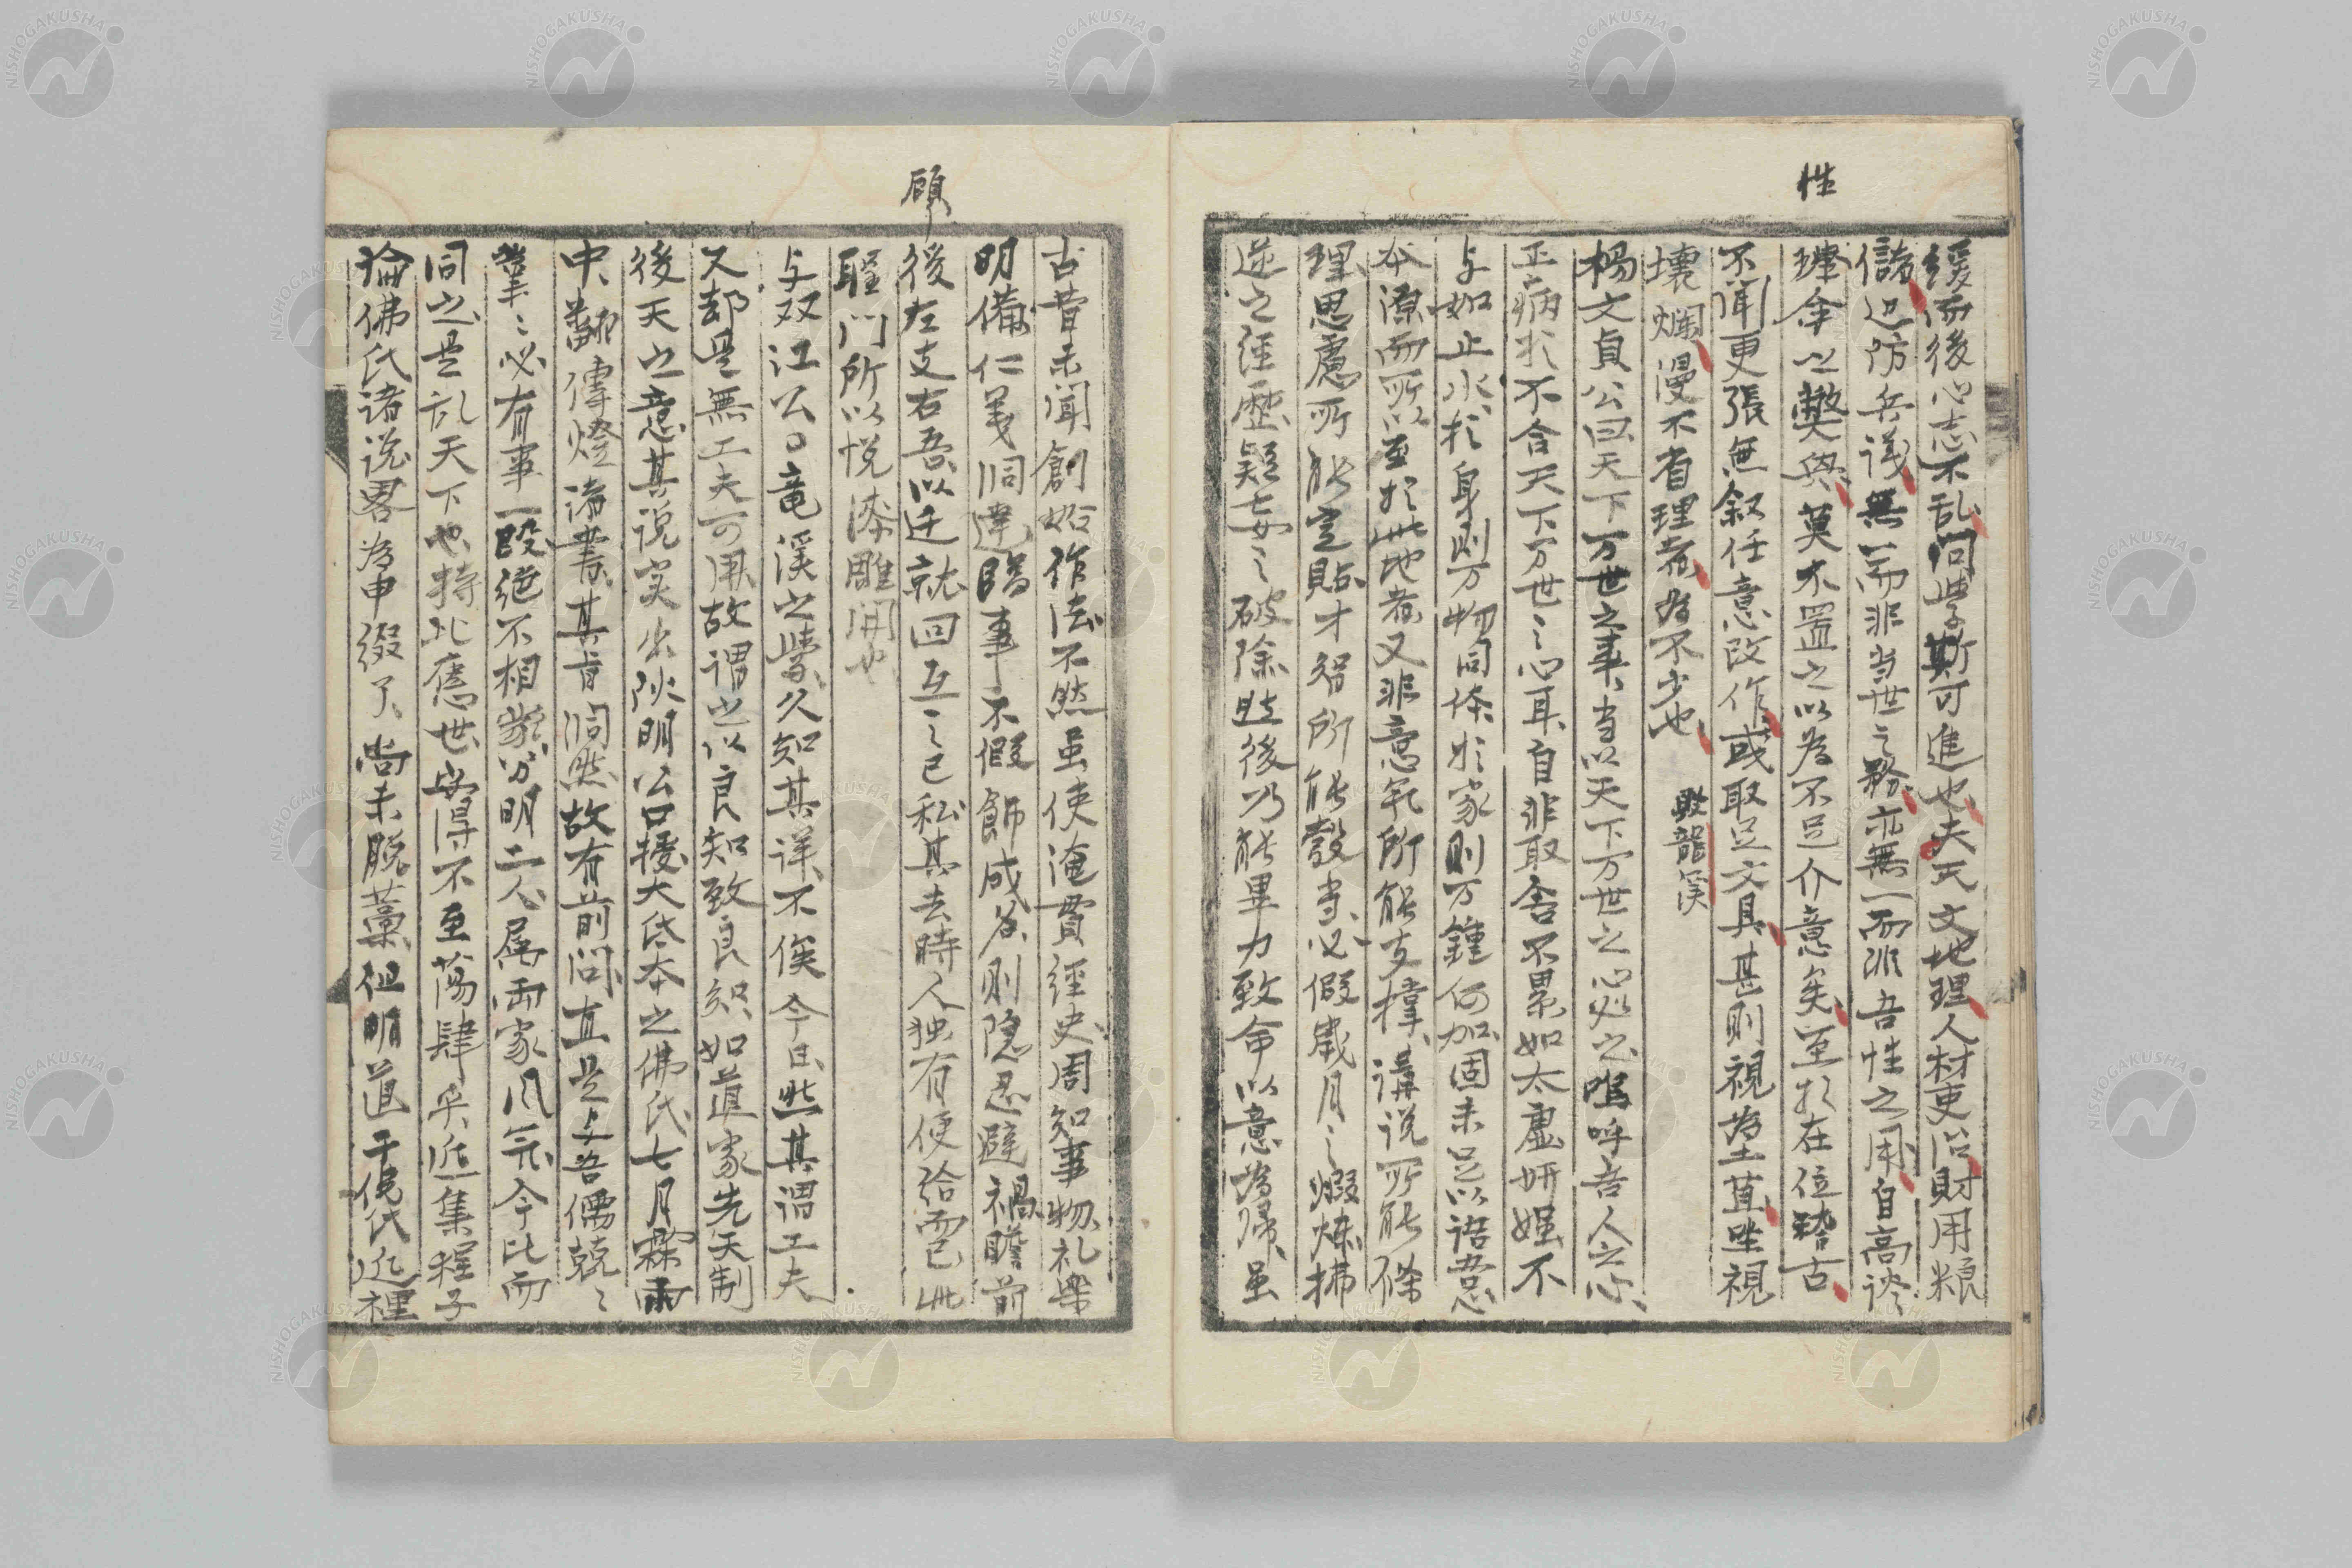 性
緩而後心志不乱問学斯可進也夫天文地理人材吏治財用粮
儲边防兵議無一而非当世之務亦無一而非吾性之用自高談
性命之樊興莫不置之以為不足介意矣至於在位稽古
不闻更張無叙任意改作或取足文具甚則視為土苴坐視
壞爛漫不省理者為不少也 欧龍溪
楊文貞公曰天下万世之事当以天下万世之心処之嗚呼吾人之心
正病於不合天下万世之心耳自非取舍不累如太虚妍媸不
与如止水於身則万物同体於家則万鍾何加固未足以语吾心
本源而所以至於此地者又非意気所能支撑講说所能條
理思慮所能窒貼才智所能彀当必假歳月之煆煉拂
逆之经歴疑妄之破除然後乃能畢力致命以意為帰虽
顧
古昔未闻創始作法不然虽使淹貫経史周知事物礼樂
明備仁義洞達臨事不假飾成谷則隐忍避禍瞻前
後左支右吾以迁就回互之己私其去時人独有便给而已此
聖門所以悦漆雕開也
与双江公曰竜溪之学久知其详不俟今日然其谓工夫
又却是無工夫可用故謂之以良知致良知如道家先天制
後天之意其说实出阳明公口授大低本之佛氏七月霖雨
中翻傳燈诸書其旨洞然故有前问直是与吾儒兢々
業々必有事一段绝不相蒙分明二人属两家风気今比而
同之是乱天下也持此應世安得不至荡肆乎近集程子
論佛氏诸说畧為申缀了尚未脱藁但明道于佛氏近裡
NISHOGAKUSHA